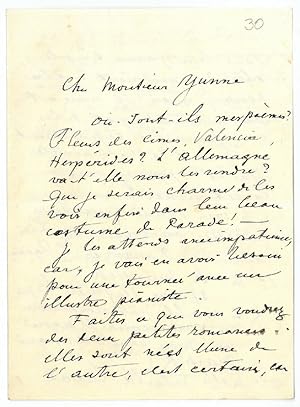 30
Cher Monsieur Yunne
Où sont-ils mes poèmes?
Fleurs des cimes, Valencia,
Hespérides? L'Allemagne
va-t-elle nous les rendre?
Que je serais charmé de les
voir enfin dans leur beau
costume de Parade!—
Je les attends avec impatience,
car, je vais en avoir besoin
pour une tournée avec un
illustre pianiste.
Faites ce que vous voudrez
des deux petites romances:
elles sont nées l'une de
l'autre, c'est certain, car